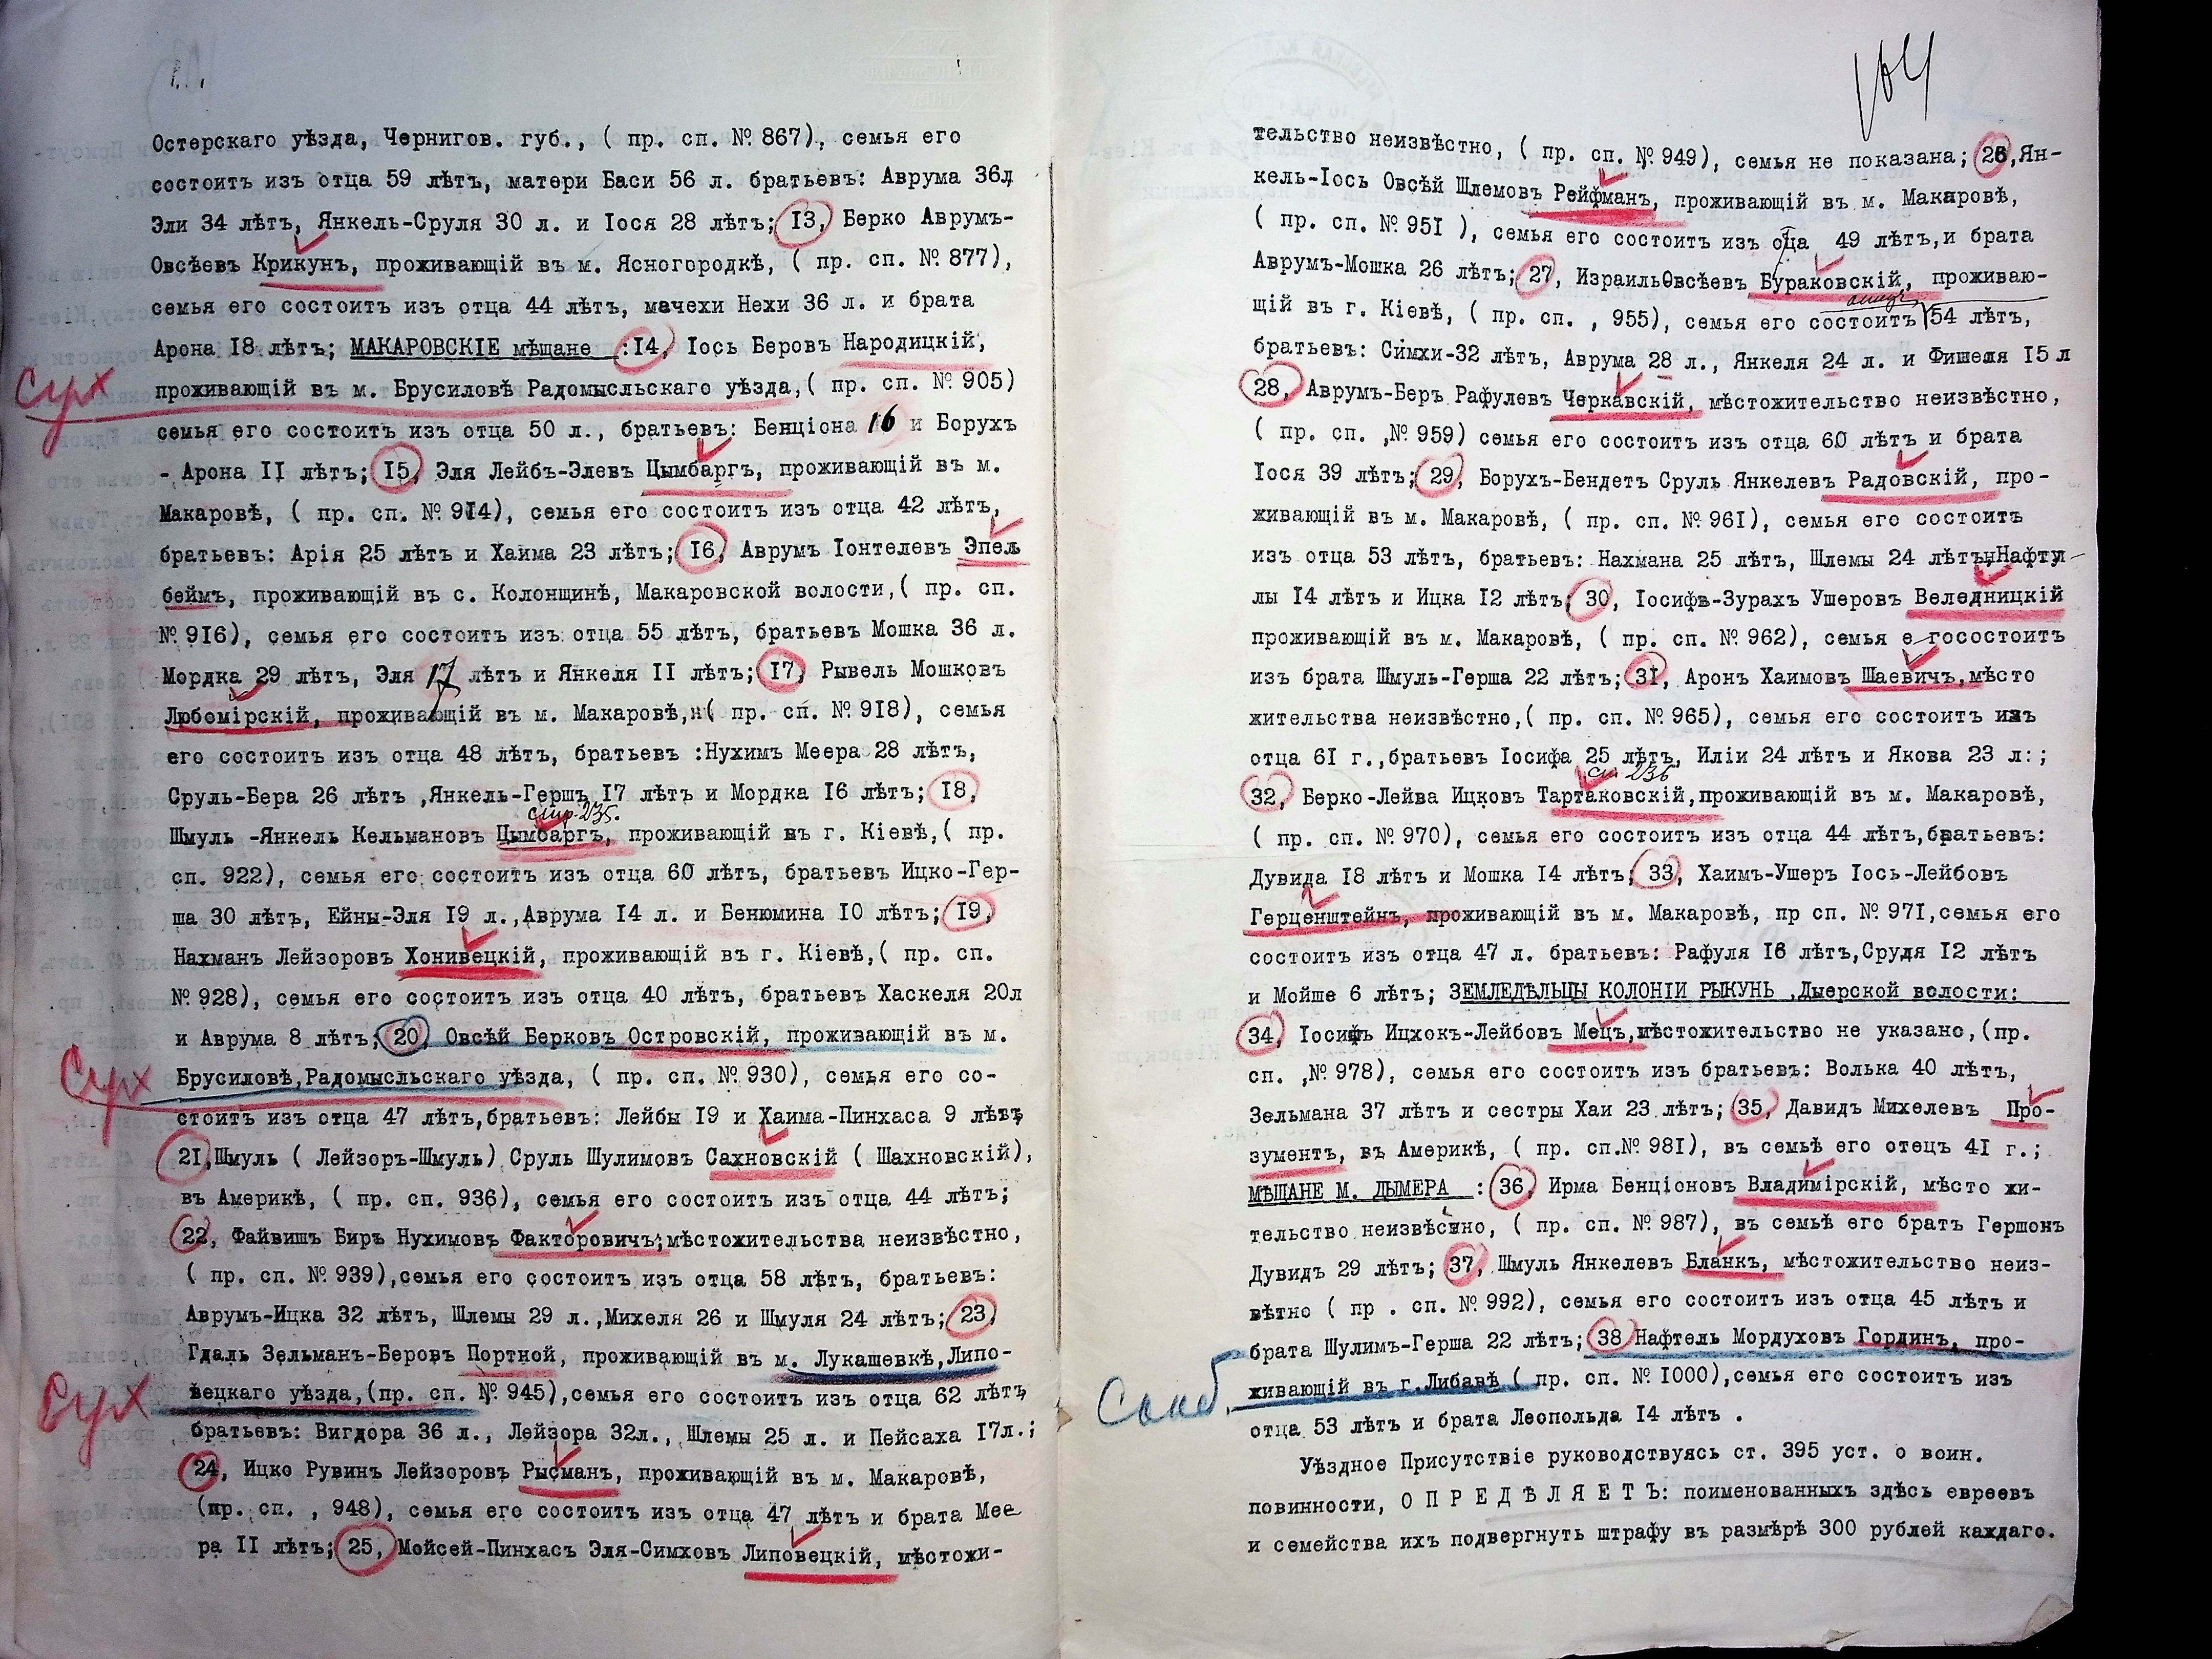 Остерскаго уѣзда, Чернигов. губ., ( пр. сп. № 867), семья его
состоитъ изъ отца 59 лѣтъ, матери Баси 56 л. братьевъ: Аврума 36л
Эли 34 лѣтъ, Янкель-Сруля 30 л. и Іося 28 лѣтъ; 13, Берко Аврумъ-
Овсѣевъ Крикунъ, проживающій въ м. Ясногородкѣ, ( пр. сп. № 877),
семья его состоитъ изъ отца 44 лѣтъ, мачехи Нехи 36 л. и брата
Арона 18 лѣтъ; МАКАРОВСКІЕ мѣщане :14, Іось Беровъ Народицкій,
Сух
проживающій въ м. Брусиловѣ Радомысльскаго уѣзда,( пр. сп. № 905)
семья его состоитъ изъ отца 50 л., братьевъ: Бенціона 16 и Борухъ
- Арона II лѣтъ; 15, Эля Лейбъ-Элевъ Цымбаргъ, проживающій въ м.
Макаровѣ, ( пр. сп. № 914), семья его состоитъ изъ отца 42 лѣтъ,
братьевъ: Арія 25 лѣтъ и Хаима 23 лѣтъ; 16, Аврумъ Іонтелевъ Эпель
беймъ, проживающій въ с. Колонщинѣ, Макаровской волости,( пр. сп.
№ 916), семья его состоитъ изъ отца 55 лѣтъ, братьевъ Мошка 36 л.
Мордка 29 лѣтъ, Эля 17 лѣтъ и Янкеля II лѣтъ; 17, Рывель Мошковъ
Любомірскій, проживающій въ м. Макаровѣ,( пр. сп. № 918), семья
его состоитъ изъ отца 48 лѣтъ, братьевъ :Нухимъ Меера 28 лѣтъ,
Сруль-Бера 26 лѣтъ ,Янкель-Гершъ 17 лѣтъ и Мордка 16 лѣтъ; 18,
стр. 235.
Шмуль -Янкель Кельмановъ Цымбаргъ, проживающій въ г. Кіевѣ,( пр.
сп. 922), семья его состоитъ изъ отца 60 лѣтъ, братьевъ Ицко-Гер-
ша 30 лѣтъ, Ейны-Эля 19 л.,Аврума 14 л. и Бенюмина 10 лѣтъ; 19,
Нахманъ Лейзоровъ Хонивецкій, проживающій въ г. Кіевѣ,( пр. сп.
№ 928), семья его состоитъ изъ отца 40 лѣтъ, братьевъ Хаскеля 20л
и Аврума 8 лѣтъ; 20, Овсѣй Берковъ Островскій, проживающій въ м.
Сух
Брусиловѣ,Радомысльскаго уѣзда, ( пр. сп. № 930), семья его со-
стоитъ изъ отца 47 лѣтъ,братьевъ: Лейбы 19 и Хаима-Пинхаса 9 лѣтъ
21,Шмуль ( Лейзоръ-Шмуль) Сруль Шулимовъ Сахновскій ( Шахновскій),
въ Америкѣ, ( пр. сп. 936), семья его состоитъ изъ отца 44 лѣтъ;
22, Файвишъ Биръ Нухимовъ Факторовичъ;мѣстожительства неизвѣстно,
( пр. сп. № 939),семья его состоитъ изъ отца 58 лѣтъ, братьевъ:
Аврумъ-Ицка 32 лѣтъ, Шлемы 29 л.,Михеля 26 и Шмуля 24 лѣтъ; 23,
Гдаль Зельманъ-Беровъ Портной, проживающій въ м. Лукашевкѣ,Липо-
Сух
вецкаго уѣзда,(пр. сп. № 945),семья его состоитъ изъ отца 62 лѣтъ
братьевъ: Вигдора 36 л., Лейзора 32л., Шлемы 25 л. и Пейсаха 17л.;
24, Ицко Рувинъ Лейзоровъ Рысманъ, проживающій въ м. Макаровѣ,
(пр. сп. , 948), семья его состоитъ изъ отца 47 лѣтъ и брата Мее
ра II лѣтъ; 25, Мойсей-Пинхасъ Эля-Симховъ Липовецкій, мѣстожи-
104
тельство неизвѣстно, ( пр. сп. № 949), семья не показана; 26,Ян-
кель-Іось Овсѣй Шлемовъ Рейфманъ, проживающій въ м. Макаровѣ,
( пр. сп. № 951 ), семья его состоитъ изъ отца 49 лѣтъ,и брата
Аврумъ-Мошка 26 лѣтъ; 27, ИзраильОвсѣевъ Бураковскій, проживаю-
отца
щій въ г. Кіевѣ, ( пр. сп. , 955), семья его состоитъ 54 лѣтъ,
братьевъ: Симхи-32 лѣтъ, Аврума 28 л., Янкеля 24 л. и Фишеля 15 л
28, Аврумъ-Беръ Рафулевъ Черкавскій, мѣстожительство неизвѣстно,
( пр. сп. ,№ 959) семья его состоитъ изъ отца 60 лѣтъ и брата
Іося 39 лѣтъ; 29, Борухъ-Бендетъ Сруль Янкелевъ Радовскій, про-
живающій въ м. Макаровѣ, ( пр. сп. № 961), семья его состоитъ
изъ отца 53 лѣтъ, братьевъ: Нахмана 25 лѣтъ, Шлемы 24 лѣтъ,Нафту
лы 14 лѣтъ и Ицка 12 лѣтъ; 30, Іосифъ-Зурахъ Ушеровъ Веледницкій
проживающій въ м. Макаровѣ, ( пр. сп. № 962), семья е госостоитъ
изъ брата Шмуль-Герша 22 лѣтъ; 31, Аронъ Хаимовъ Шаевичъ,мѣсто
жительства неизвѣстно,( пр. сп. № 965), семья его состоитъ изъ
отца 61 г.,братьевъ Іосифа 25 лѣтъ, Иліи 24 лѣтъ и Якова 23 л:;
ст 236
32, Берко-Лейва Ицковъ Тартаковскій,проживающій въ м. Макаровѣ,
( пр. сп. № 970), семья его состоитъ изъ отца 44 лѣтъ,братьевъ:
Дувида 18 лѣтъ и Мошка 14 лѣтъ; 33, Хаимъ-Ушеръ Іось-Лейбовъ
Герценштейнъ, проживающій въ м. Макаровѣ, пр сп. № 971,семья его
состоитъ изъ отца 47 л. братьевъ: Рафуля 16 лѣтъ,Срудя 12 лѣтъ
и Мойше 6 лѣтъ; ЗЕМЛЕДѢЛЬЦЫ КОЛОНІИ РЫКУНЬ ,Дыерской волости:
34, Іосифъ Ицхокъ-Лейбовъ Мецъ,мѣстожительство не указано,(пр.
сп. ,№ 978), семья его состоитъ изъ братьевъ: Волька 40 лѣтъ,
Зельмана 37 лѣтъ и сестры Хаи 23 лѣтъ; 35, Давидъ Михелевъ Про-
зументъ, въ Америкѣ, ( пр. сп.№ 981), въ семьѣ его отецъ 41 г.;
МѢЩАНЕ М. ДЫМЕРА : 36, Ирма Бенціоновъ Владимірскій, мѣсто жи-
тельство неизвѣстно, ( пр. сп. № 987), въ семьѣ его братъ Гершонъ
Дувидъ 29 лѣтъ; 37, Шмуль Янкелевъ Бланкъ, мѣстожительство неиз-
вѣтно ( пр . сп. № 992), семья его состоитъ изъ отца 45 лѣтъ и
брата Шулимъ-Герша 22 лѣтъ; 38 Нафтель Мордуховъ Гординъ, про-
живающій въ г.Либавѣ ( пр. сп. № 1000),семья его состоитъ изъ
отца 53 лѣтъ и брата Леопольда 14 лѣтъ .
Уѣздное Присутствіе руководствуясь ст. 395 уст. о воин.
повинности, О П Р Е Д Ѣ Л Я Е Т Ъ: поименованныхъ здѣсь евреевъ
и семейства ихъ подвергнуть штрафу въ размѣрѣ 300 рублей каждаго.